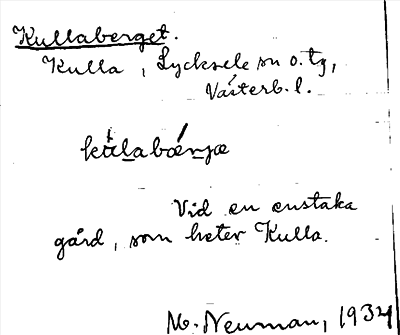 Kullaberget.
Kulla, Lycksele sn o. tg,
Västerb. l.
Vid en enstaka
gård, som heter Kulla.
M. Neuman, 1934